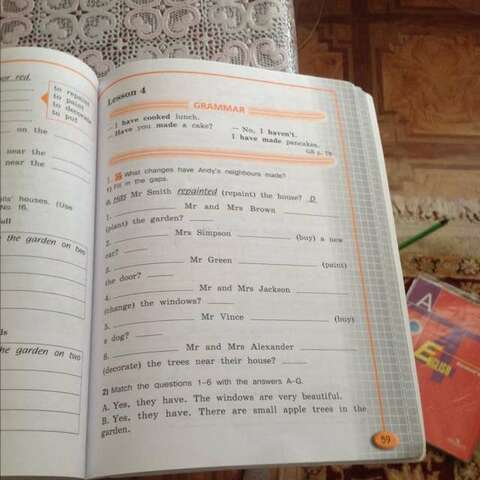 or red.
on the
near the
near the
nts' houses. (Use
No 16.
full
the garden on two
ds
he garden on two
to repaint
to paint
to decorate
to put
Lesson 4
GRAMMAR
I have cooked lunch.
Have you made a cake?
– No, I haven't.
I have made pancakes.
GR p. 79
1. What changes have Andy's neighbours made?
1) Fill in the gaps.
0. Has Mr Smith repainted (repaint) the house? D
1. Mr and Mrs Brown
(plant) the garden?
2. Mrs Simpson (buy) a new
car?
3. Mr Green (paint)
the door?
4. Mr and Mrs Jackson
(change) the windows?
5. Mr Vince (buy)
a dog?
6. Mr and Mrs Alexander
(decorate) the trees near their house?
2) Match the questions 1–6 with the answers A–G.
A. Yes, they have. The windows are very beautiful.
B. Yes, they have. There are small apple trees in the
garden.
59
A
ENGLISH